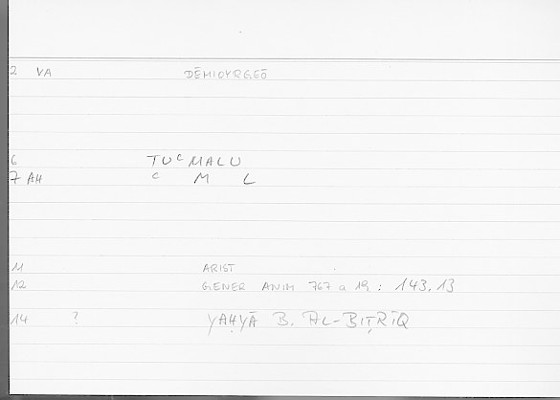 2 VA DĒMIOYRGEŌ
6 TUᶜMALU
7 AH ᶜ M L
11 ARIST
12 GENER ANIM 767 a 19 : 143.13
14 ? YAḤYĀ B. AL-BIṬRĪQ